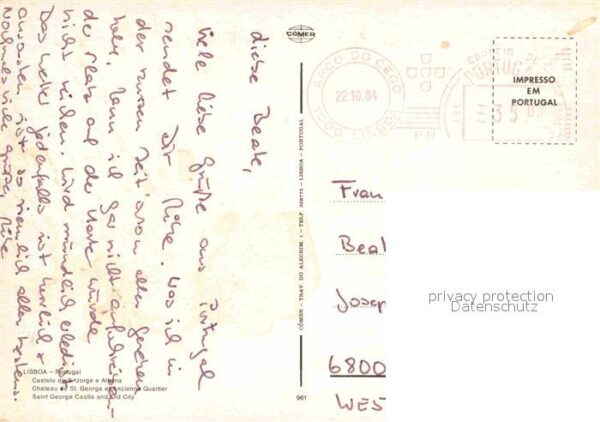 Liebe Beate,
viele liebe Grüße aus Portugal
sendet Dir Silke. Was ich in
der kurzen Zeit schon alles gesehen
habe, kann ich gar nicht aufschreiben –
der Platz auf der Karte würde
nicht reichen. Wird mündlich erledigt.
Das Wetter jedenfalls ist herrlich &
ansonsten ist so ziemlich alles bestens.
Nochmals viele Grüße, Silke
LISBOA – Portugal
Castelo de S. Jorge e Alfama
Chateau de St. George et Ancienne Quartier
Saint George Castle and Old City
961
CÓMER – TRAV. DO ALECRIM, 1 – TELF. – LISBOA – PORTUGAL
CÓMER
ARCO DO CEGO
22.10.84
1000 LISBOA
CORREIO DE
PORTUGAL
35
PR
IMPRESSO
EM
PORTUGAL
Frau
Beat
Josep
6800
WES
privacy protection
Datenschutz